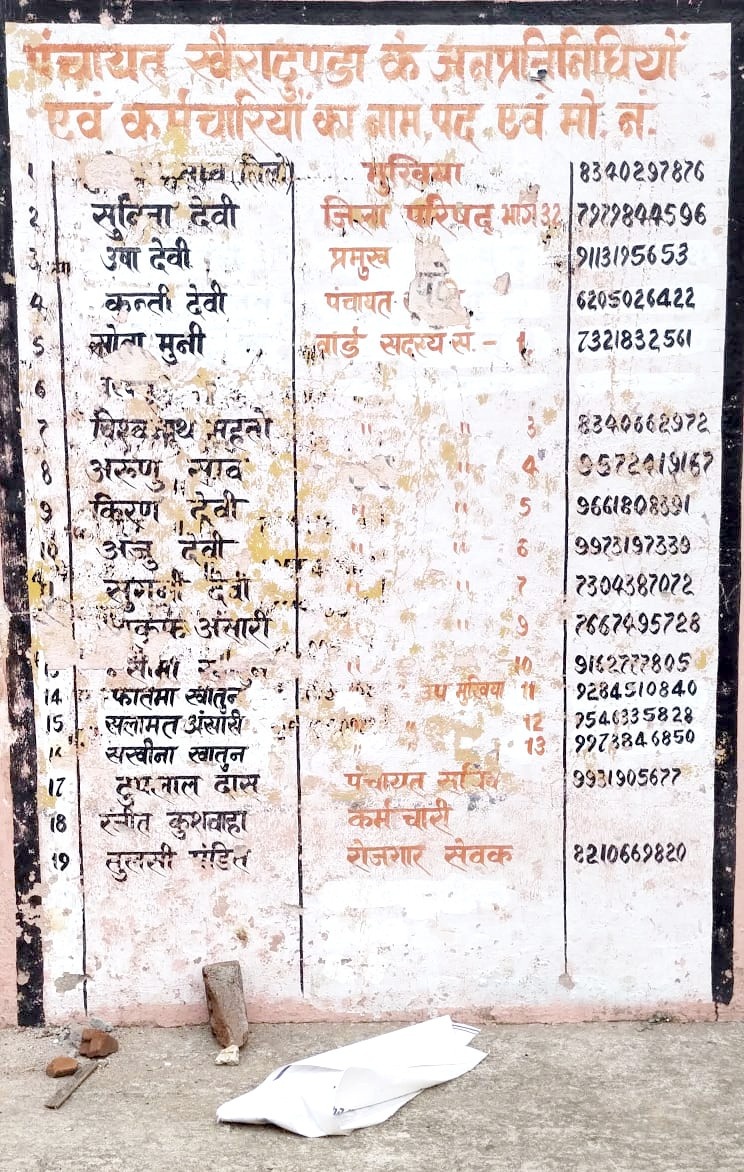 पंचायत खैराटुण्डा के जनप्रतिनिधियों
एवं कर्मचारियों का नाम, पद, एवं मो. नं.
1 साव (तिलो) मुखिया 8340297876
2 सुनिता देवी जिला परिषद् भाग 32 7979844596
3 उषा देवी प्रमुख 9113195653
4 कन्ती देवी पंचायत 6205026422
5 मुनी वार्ड सदस्य सं. - 1 7321832561
6
7 विश्वनाथ महतो " 3 8340662972
8 अरुण साव " 4 9572419167
9 किरण देवी " " 5 9661808391
10 अंजु देवी " " 6 9973197339
11 सुगनी देवी " " 7 7304387072
अंसारी " " 9 7667495728
13 " 10 9162777805
14 फातमा खातुन उप मुखिया 11 9284510840
15 सलामत अंसारी " 12 9546335828
16 सखीना खातुन " 13 9973846850
17 दास पंचायत सचिव 9931905677
18 रंजीत कुशवाहा कर्मचारी
19 तुलसी पंडित रोजगार सेवक 8210669820